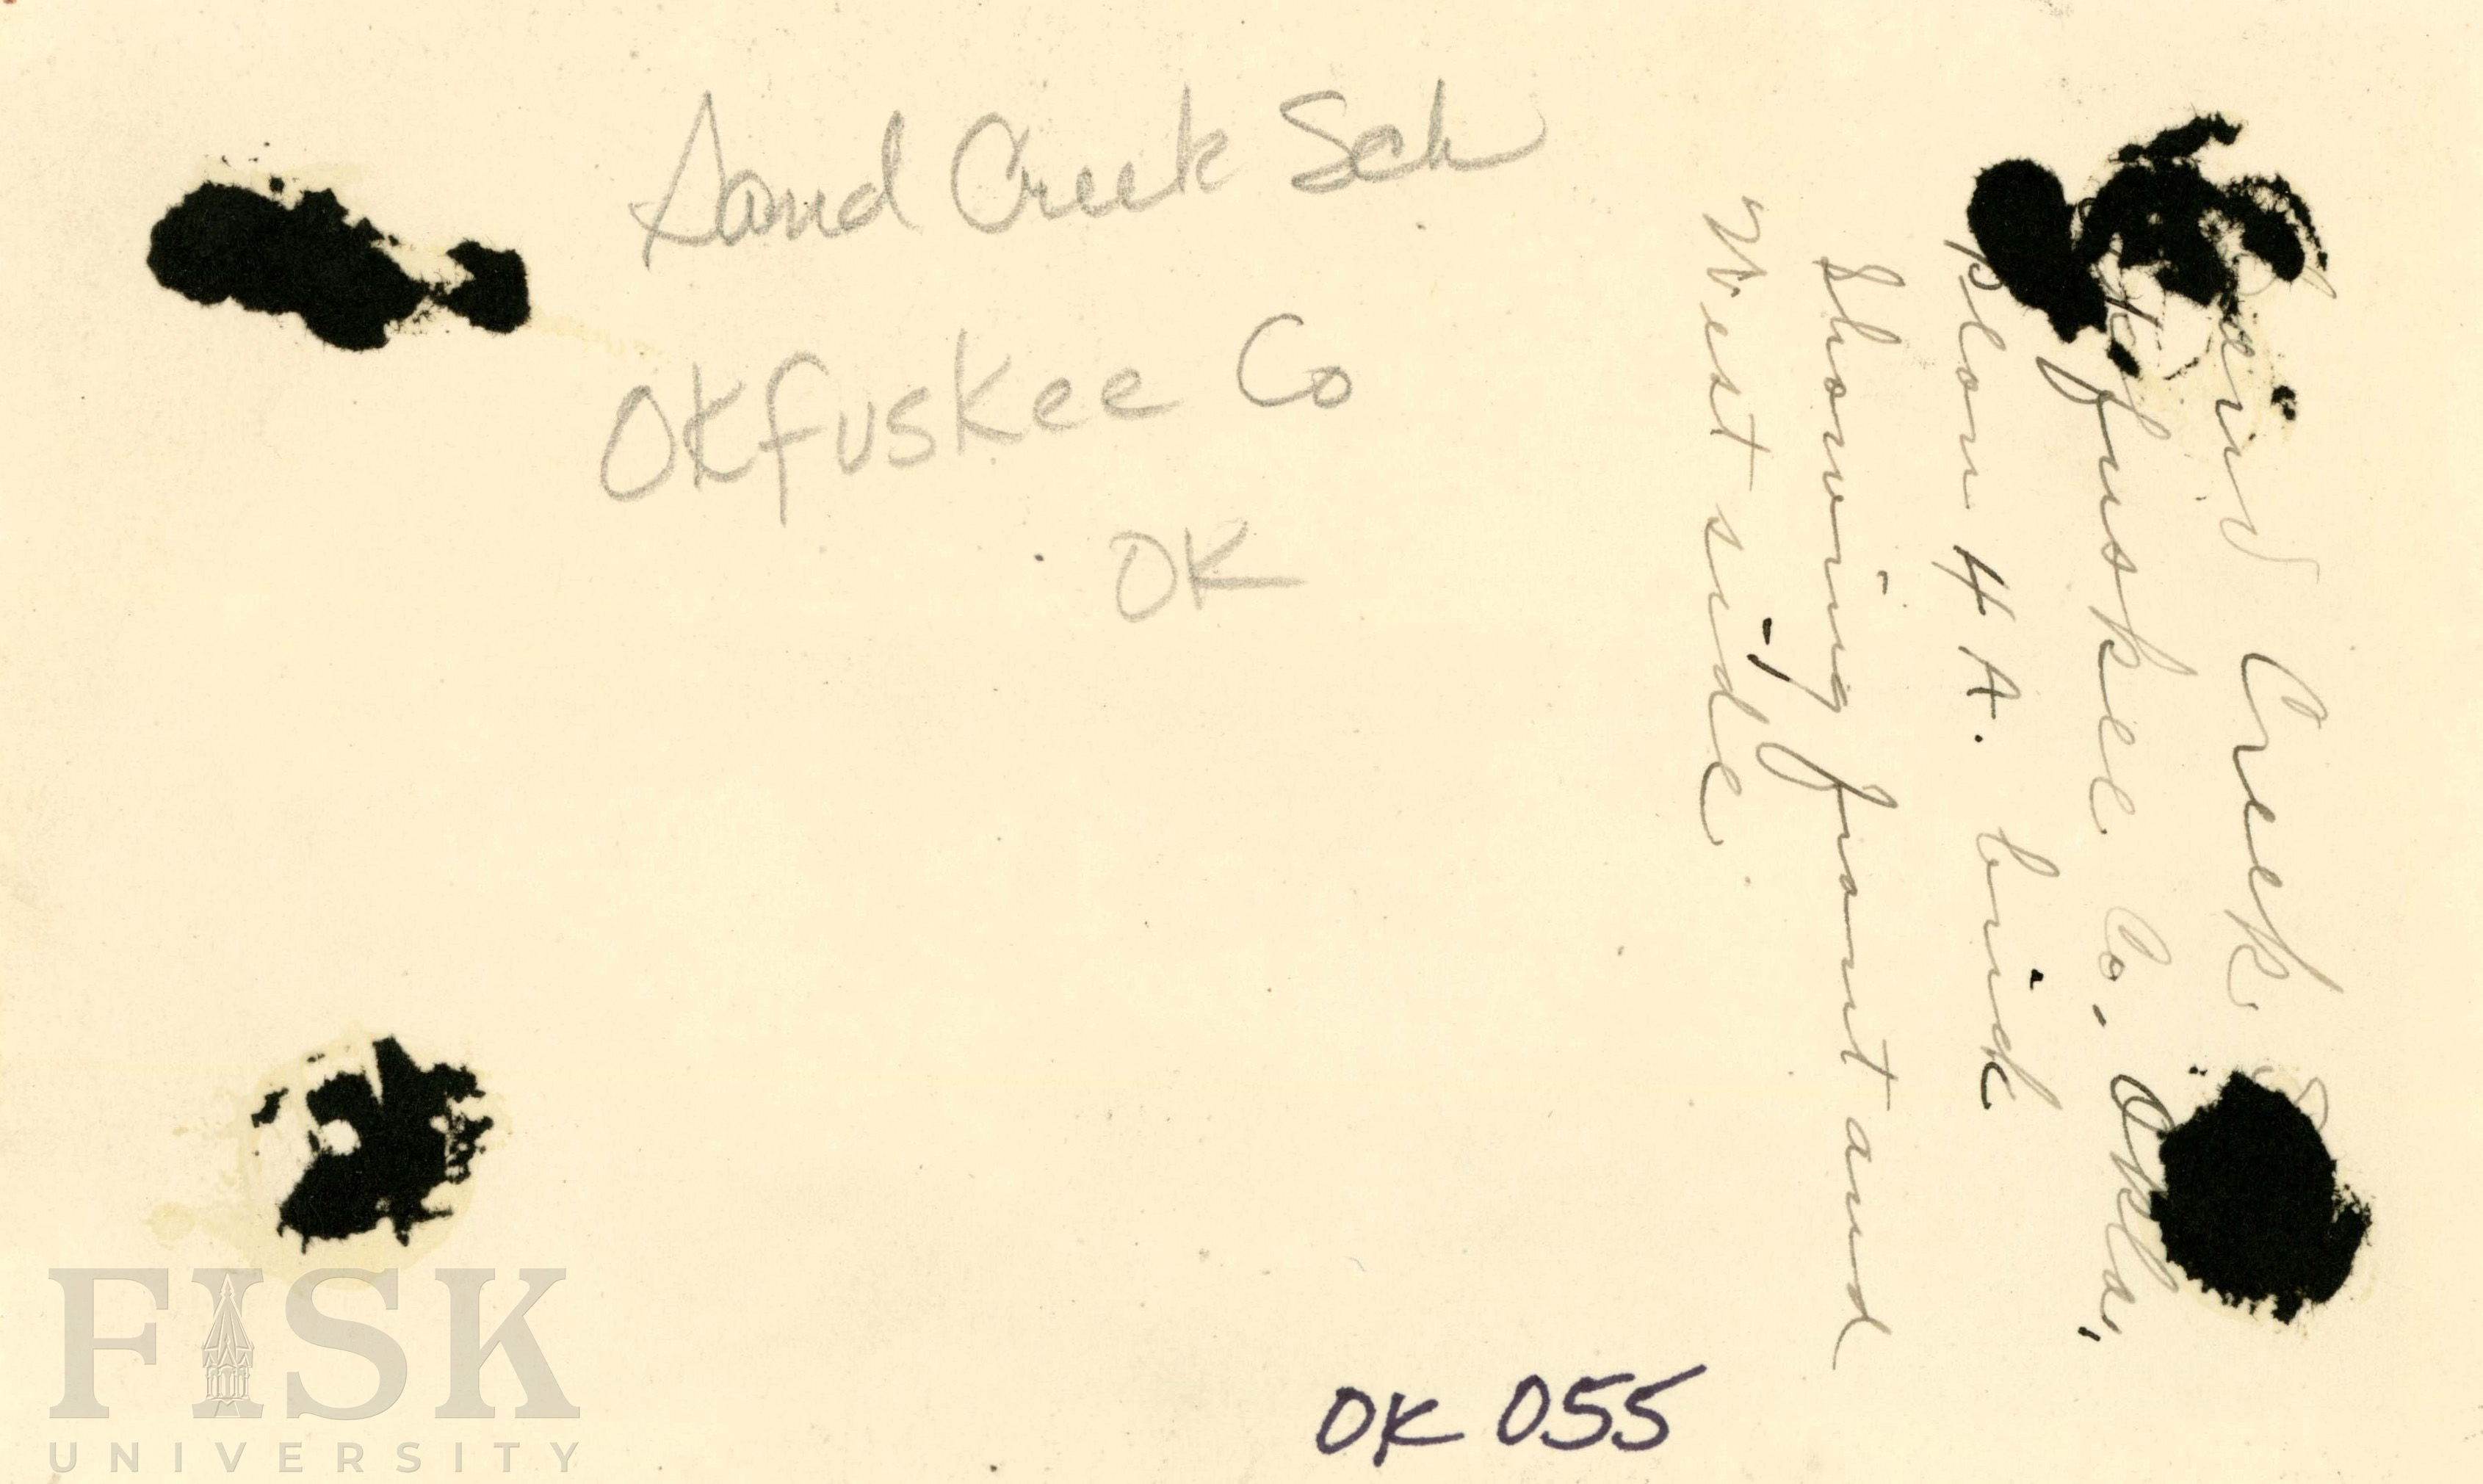 Sand Creek Sch
Okfuskee Co
OK
Creek
Okfuskee Co. Okla.
Plan 4 A. brick
Showing front and
West side
OK 055
FISK
UNIVERSITY